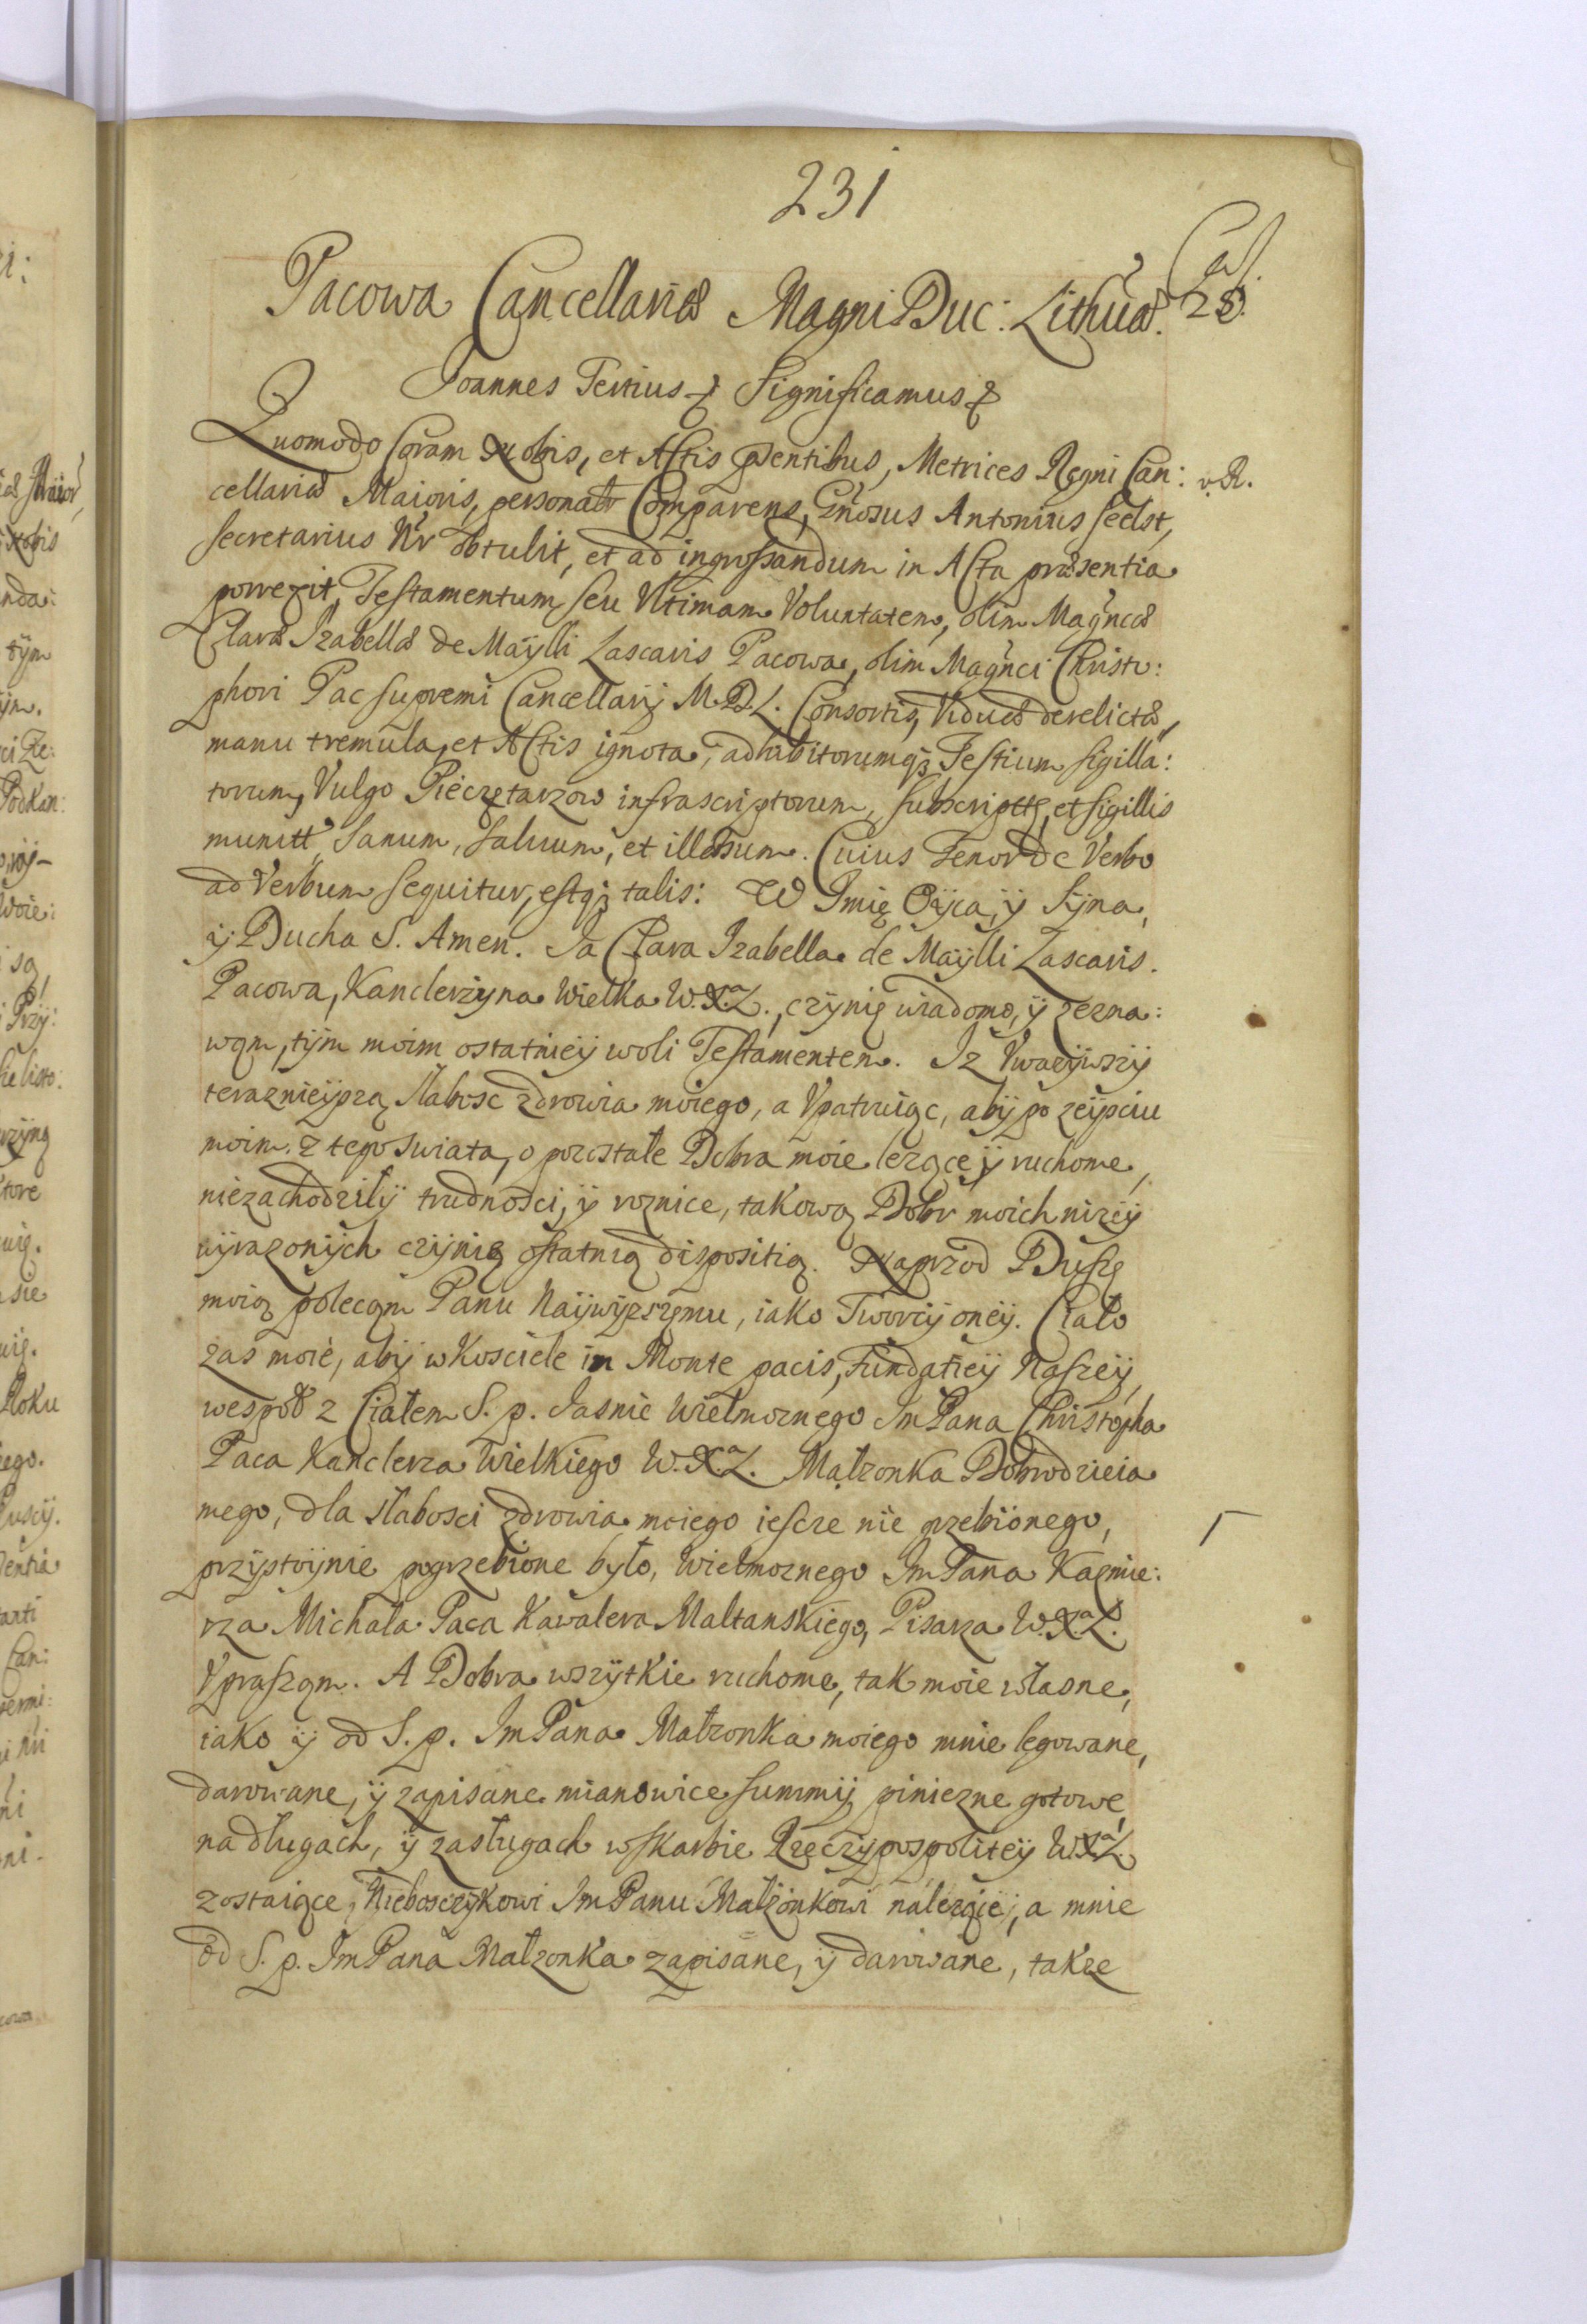 231
Pacowa Cancellariæ Magni Duc: Lithuæ.
28.
Joannes Tertius etc Significamus etc
Quomodo Coram Nobis, et Actis pntibus, Metrices Regni Can:
v. R.
cellariæ Maioris, personalr Comparens, Gnosus Antonius Seelst,
secretarius Nr obtulit, et ad ingrossandum in Acta præsentia
porrexit, Testamentum seu Vltimam Voluntatem, olim Magncæ
Claræ Izabellæ de Maÿlli Lascaris Pacowa, olim Magnci Christo:
phori Pac supremi Cancellarij M. D. L. Consortis, Viduæ derelictæ,
manu tremula, et Actis ignota, adhibitorumqz Testium sigilla:
torum, Vulgo Pieczętarzow infrascriptorum, subscriptt, et sigillis
munitt, Sanum, saluum, et illæsum. Cuius Tenor de Verbo
ad Verbum sequitur, estqz talis: W Imię Oÿca, ÿ Sÿna,
ÿ Ducha S. Amen. Ja Clara Izabella de Maÿlli Lascaris.
Pacowa, Kanclerzÿna Wielka W. X.a L., czÿnię wiadomo, ÿ zezna:
wąm, tÿm moim ostatnieÿ woli Testamentem. Iz Vwazÿwszÿ
teraznieÿszą słabosc zdrowia moiego, a Vpatruiąc, abÿ po zeÿsciu
moim z tego swiata, o pozostałe Dobra moie lezące ÿ ruchome,
niezachodziłÿ trudnosci, ÿ roznice, takową Dobr moich nizeÿ
wÿrazonÿch czÿnię ostatnią dispositią. Naprzod Duszę
moią polecąm Panu Naÿwÿzszemu, iako Tworcÿ oneÿ. Ciało
zas moie, abÿ w Kosciele in Monte pacis, Fundatieÿ Naszeÿ,
wespoł z Ciałem S. p. Jasnie Wielmoznego Im Pana Christopha
Paca Kanclerza Wielkiego W. X.a L. Małzonka Dobrodzieia
mego, dla słabosci zdrowia moiego iescze nie przebionego,
przÿstoÿnie pogrzebione było, Wielmoznego Im Pana Kazmie:
rza Michała Paca Kawalera Maltanskiego, Pisarza W. X.a L.
Vprasząm. A Dobra wszÿtkie ruchome, tak moie własne,
iako ÿ od S. p. Im Pana Małzonka moiego mnie legowane,
darowane, ÿ zapisane mianowice summÿ piniezne gotowe,
na długach, ÿ zasługach w skarbie Rzeczÿpospoliteÿ W. X.a L.
zostaiące, Nieboszczÿkowi Im Panu Małzonkowi nalezące, a mnie
od S. p. Im Pana Małzonka zapisane, ÿ darowane, takze